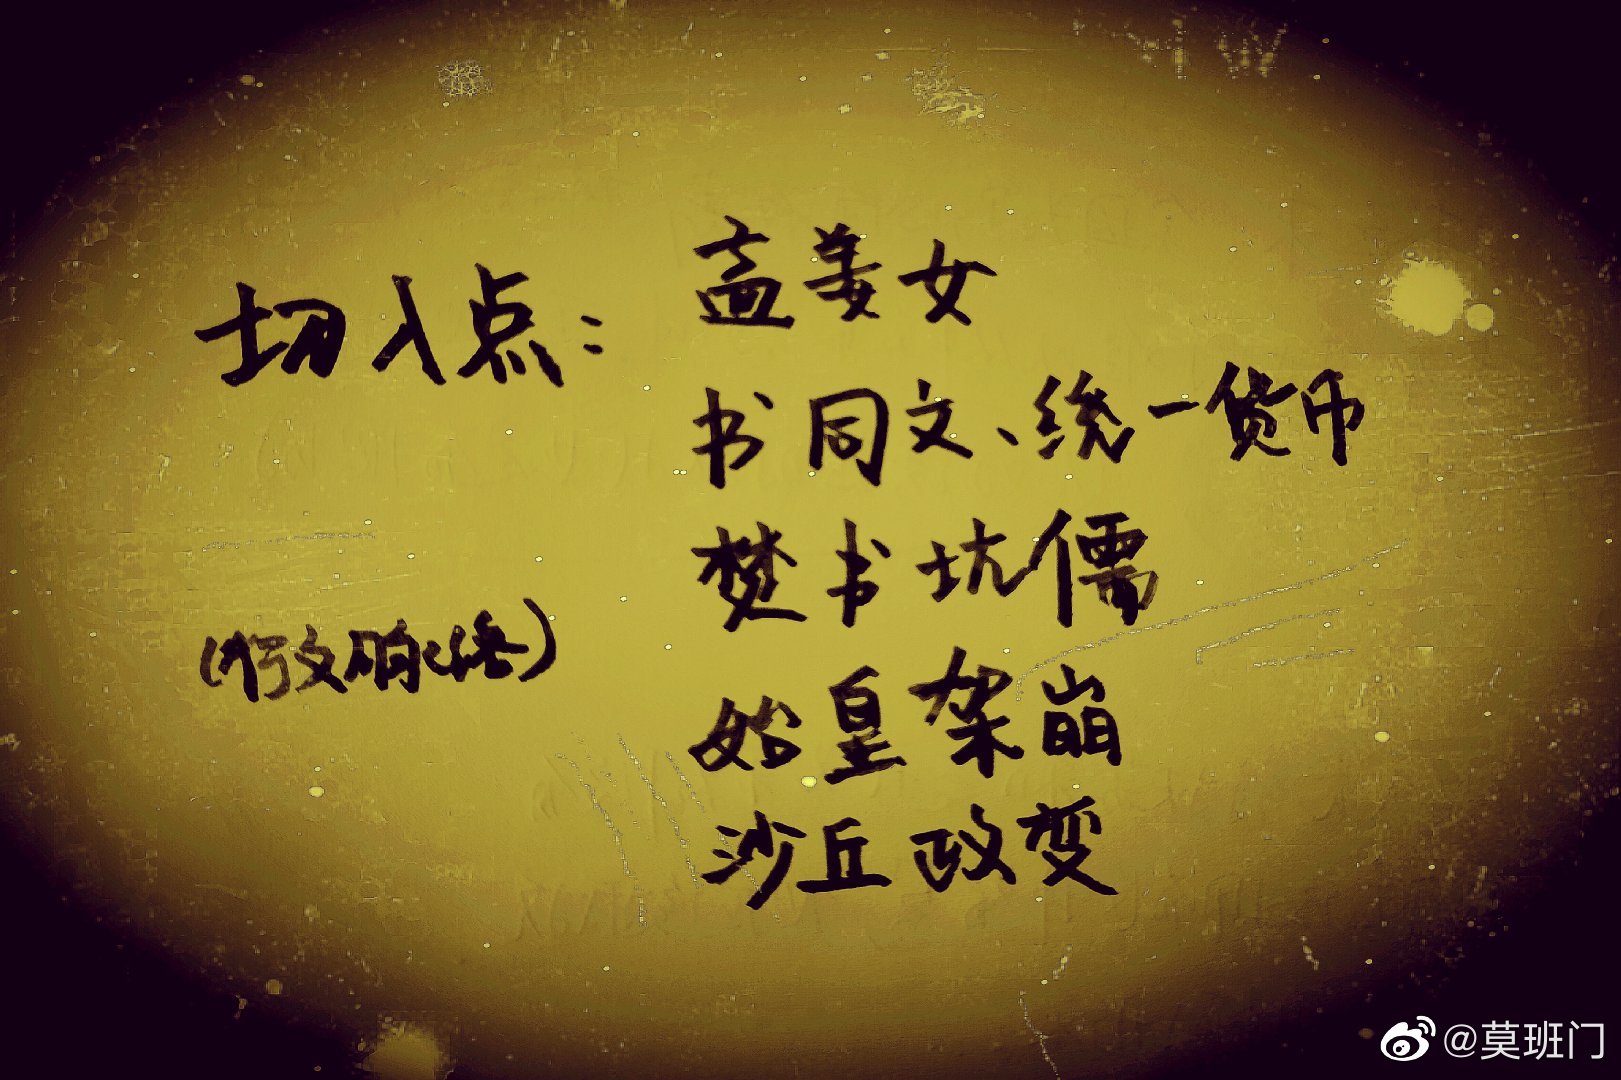 切入点：
孟姜女
书同文、统一货币
焚书坑儒
始皇驾崩
沙丘政变
(行文脉络)
@莫班门